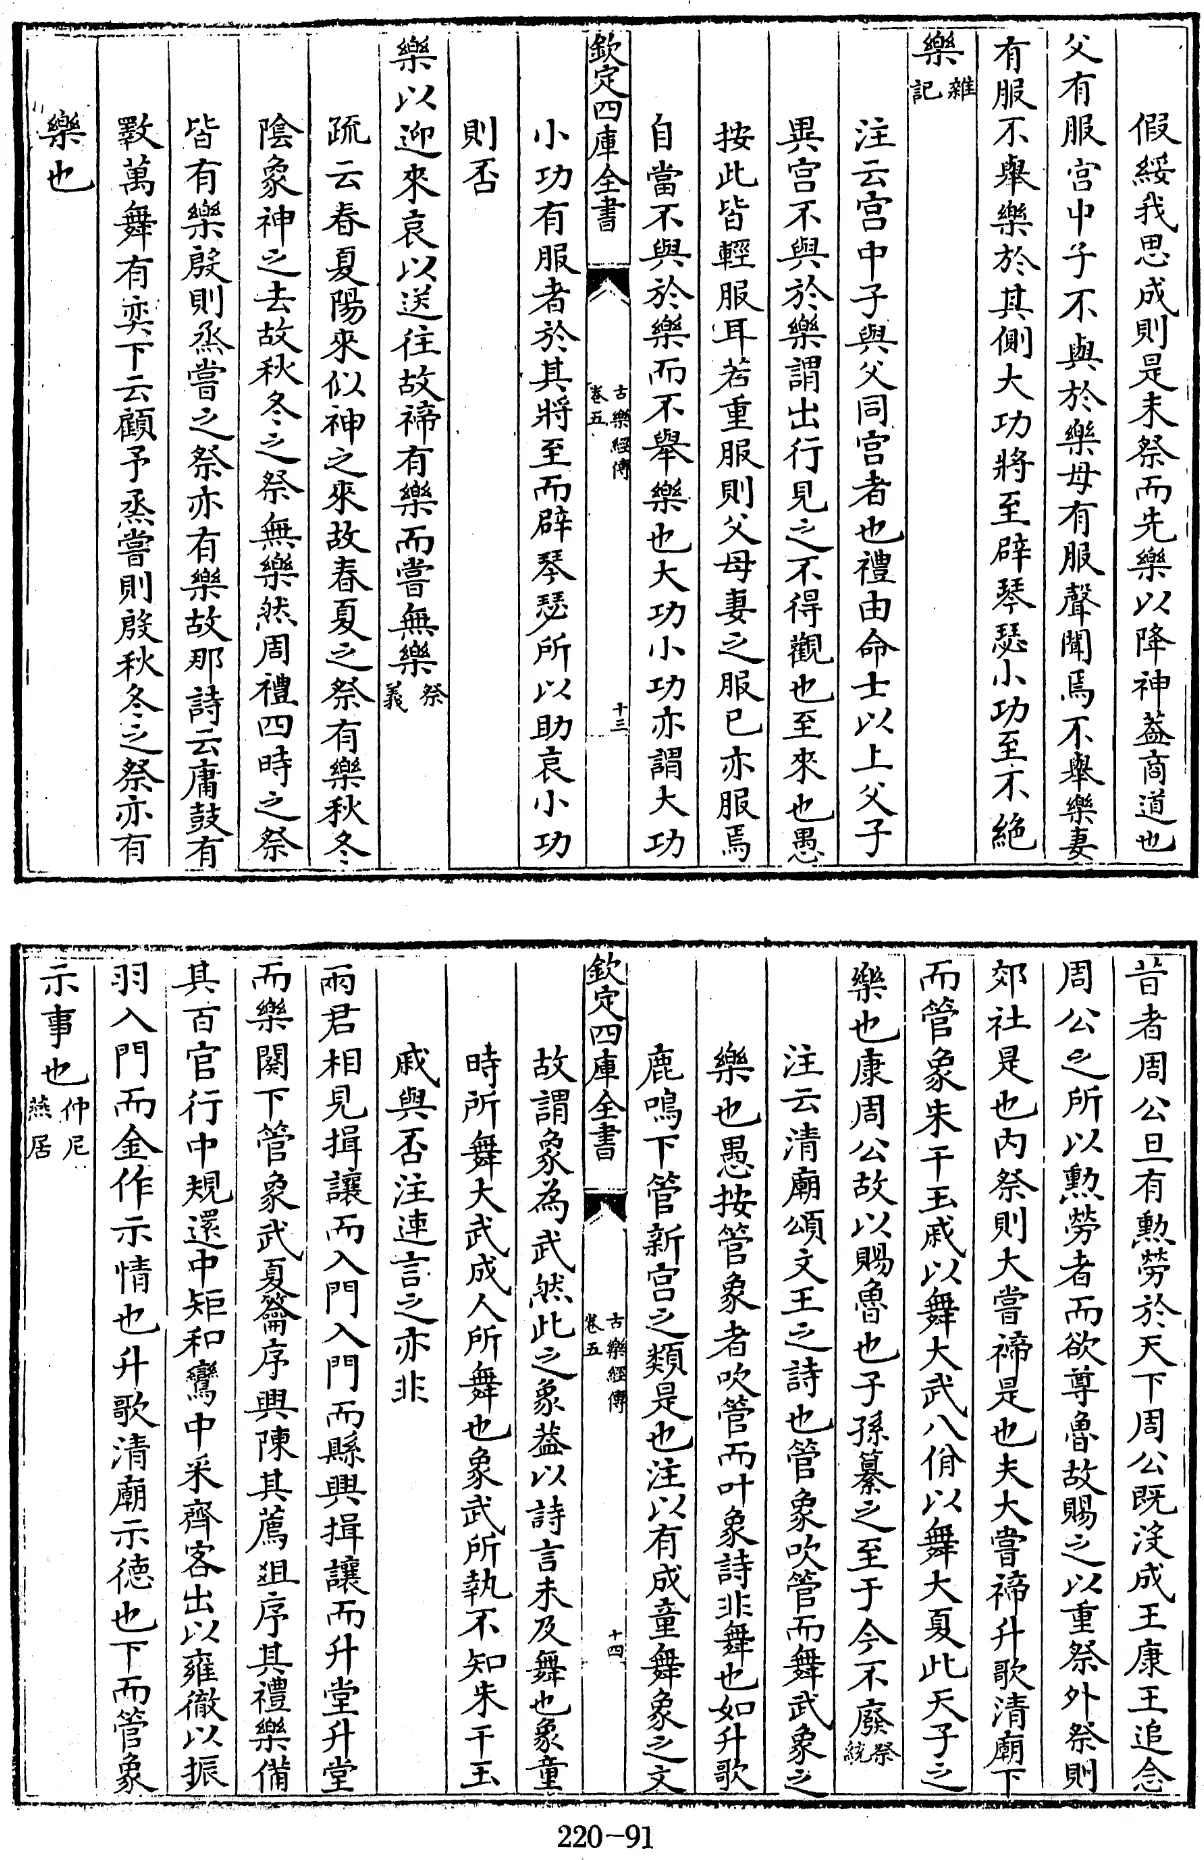 假綏我思成則是未祭而先樂以降神葢商道也
父有服宫中子不與於樂母有服聲聞焉不舉樂妻
有服不舉樂於其側大功將至辟琴瑟小功至不絶
樂雜記
注云宫中子與父同宫者也禮由命士以上父子
異宫不與於樂謂出行見之不得觀也至來也愚
按此皆輕服耳若重服則父母妻之服已亦服焉
自當不與於樂而不舉樂也大功小功亦謂大功
欽定四庫全書 古樂經傳卷五 十三
小功有服者於其將至而辟琴瑟所以助哀小功
則否
樂以迎來哀以送往故禘有樂而嘗無樂祭義
疏云春夏陽來似神之來故春夏之祭有樂秋冬
陰象神之去故秋冬之祭無樂然周禮四時之祭
皆有樂殷則烝嘗之祭亦有樂故那詩云庸鼓有
斁萬舞有奕下云顧予烝嘗則殷秋冬之祭亦有
樂也
昔者周公旦有勲勞於天下周公既没成王康王追念
周公之所以勲勞者而欲尊魯故賜之以重祭外祭則
郊社是也内祭則大嘗禘是也夫大嘗禘升歌清廟下
而管象朱干玉戚以舞大武八佾以舞大夏此天子之
樂也康周公故以賜魯也子孫纂之至于今不廢祭統
注云清廟頌文王之詩也管象吹管而舞武象之
樂也愚按管象者吹管而叶象詩非舞也如升歌
鹿鳴下管新宫之類是也注以有成童舞象之文
欽定四庫全書 古樂經傳卷五 十四
故謂象為武然此之象葢以詩言未及舞也象童
時所舞大武成人所舞也象武所執不知朱干玉
戚與否注連言之亦非
兩君相見揖讓而入門入門而縣興揖讓而升堂升堂
而樂闋下管象武夏籥序興陳其薦俎序其禮樂備
其百官行中規還中矩和鸞中采齊客出以雍徹以振
羽入門而金作示情也升歌清廟示德也下而管象
示事也仲尼燕居
220-91